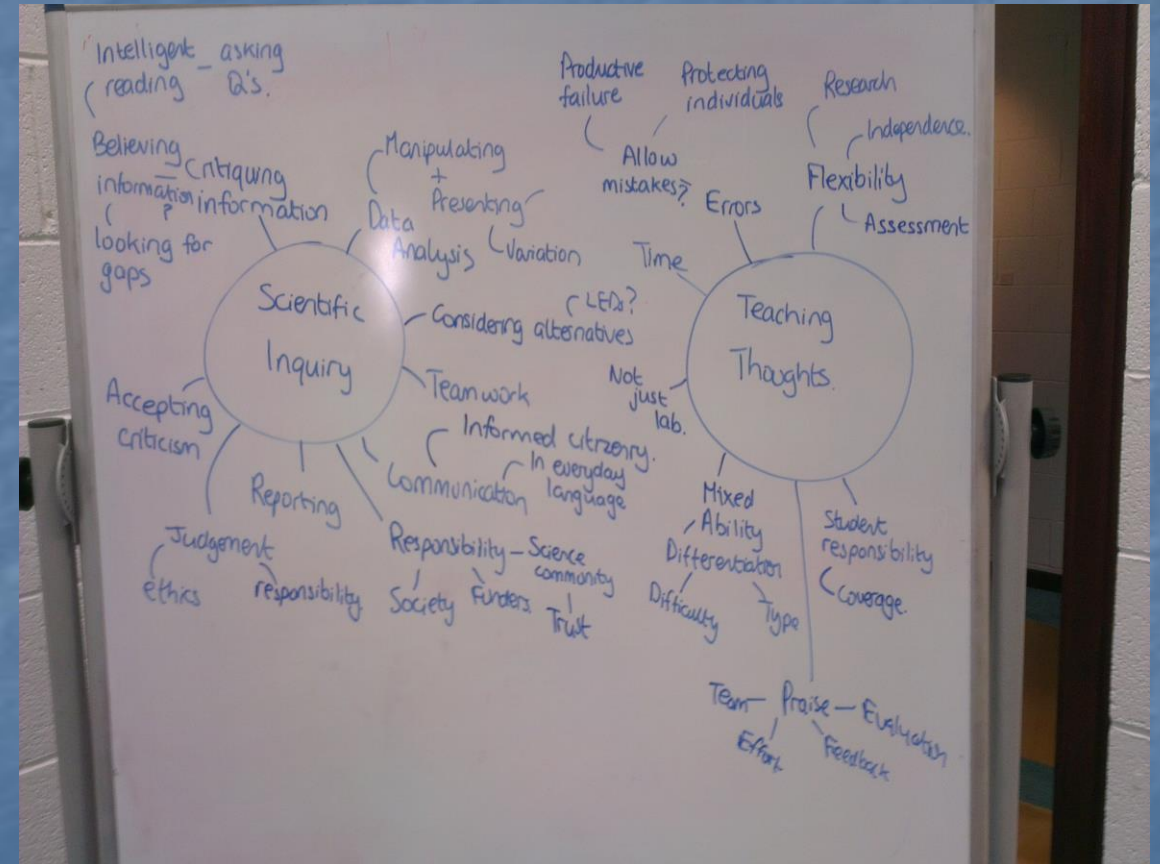 Intelligent _ asking
reading Q's.
Believing
information
?
looking for
gaps
Critiquing
information
Manipulating
+
Presenting
Variation
Data
Analysis
Scientific
Inquiry
LEDs?
Considering alternatives
Teamwork
Informed citizenry.
In everyday
language
Communication
Accepting
criticism
Reporting
Judgement
ethics
responsibility
Responsibility – Science
community
Society
Funders
Trust
Productive
failure
Protecting
individuals
Allow
mistakes?
Errors
Research
Independence.
Flexibility
Assessment
Time
Teaching
Thoughts.
Not
just
lab.
Mixed
Ability
Differentiation
Difficulty
Type
Student
responsibility
Coverage.
Team – Praise – Evaluation
Effort
Feedback